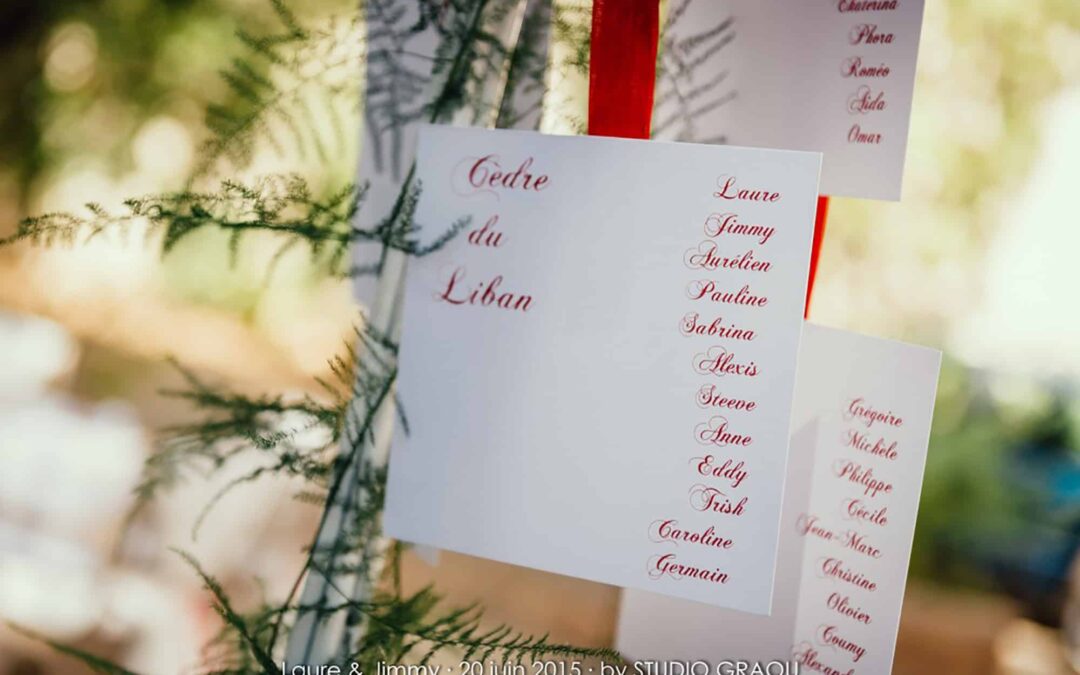 Cèdre
du
Liban
Laure
Jimmy
Aurélien
Pauline
Sabrina
Alexis
Steeve
Anne
Eddy
Trish
Caroline
Germain
Ekaterina
Phora
Roméo
Aida
Omar
Grégoire
Michèle
Philippe
Cécile
Jean-Marc
Christine
Olivier
Coumy
Laure & Jimmy · 20 juin 2015 · by STUDIO GRAOU